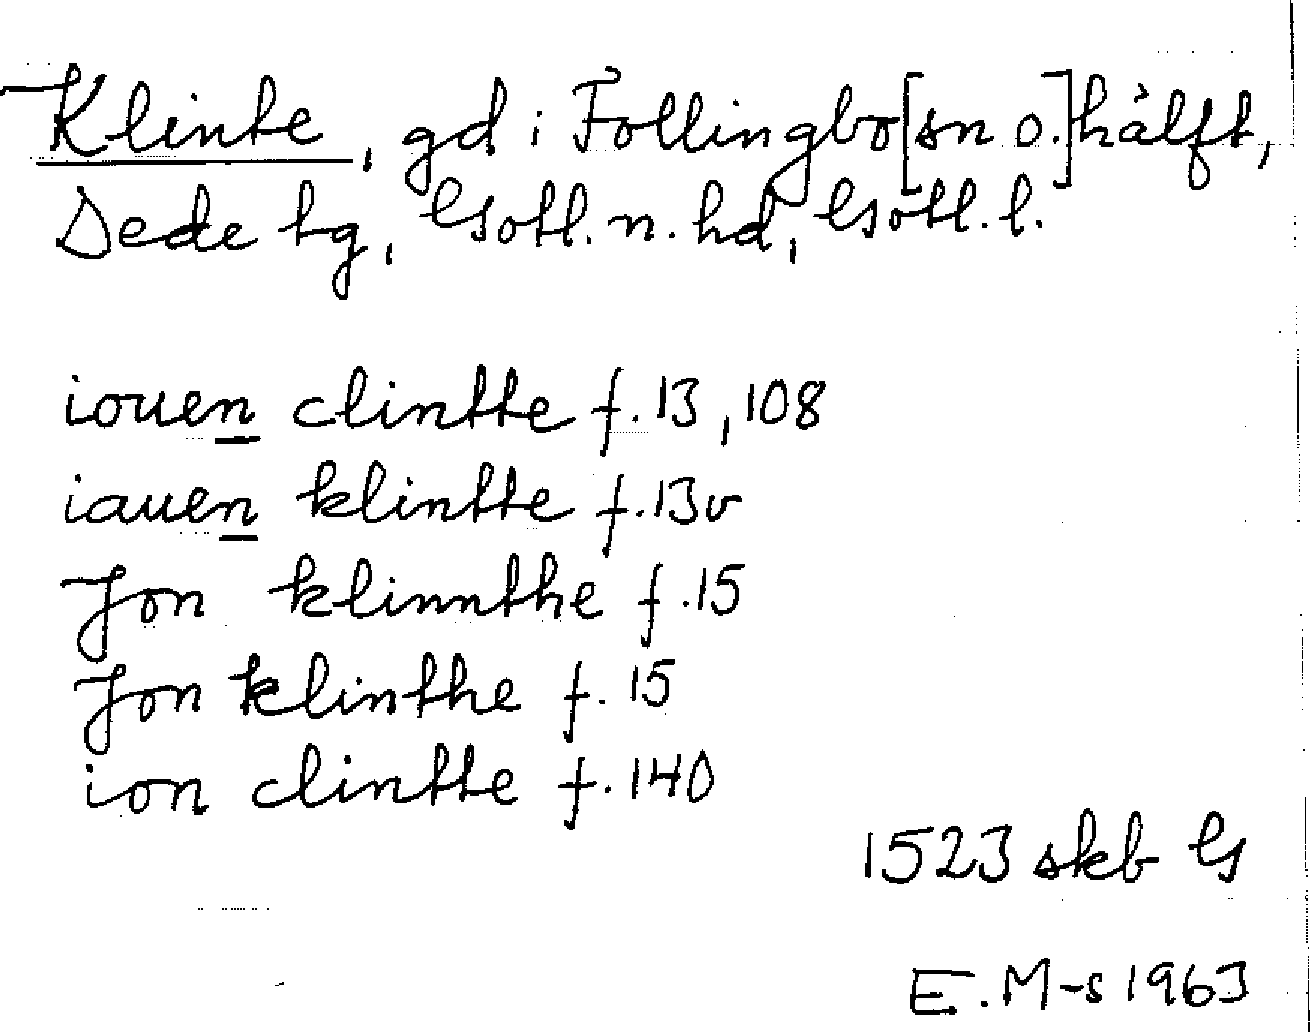 Klinte, gd i Follingbo[sn o.]hälft,
Dede tg, Gotl. n. hd, Gotl. l.
iouen clintte f. 13, 108
iauen klintte f. 13v
Jon klinnthe f. 15
Jon klinthe f. 15
ion clintte f. 140
1523 skb G
E. M-s 1963